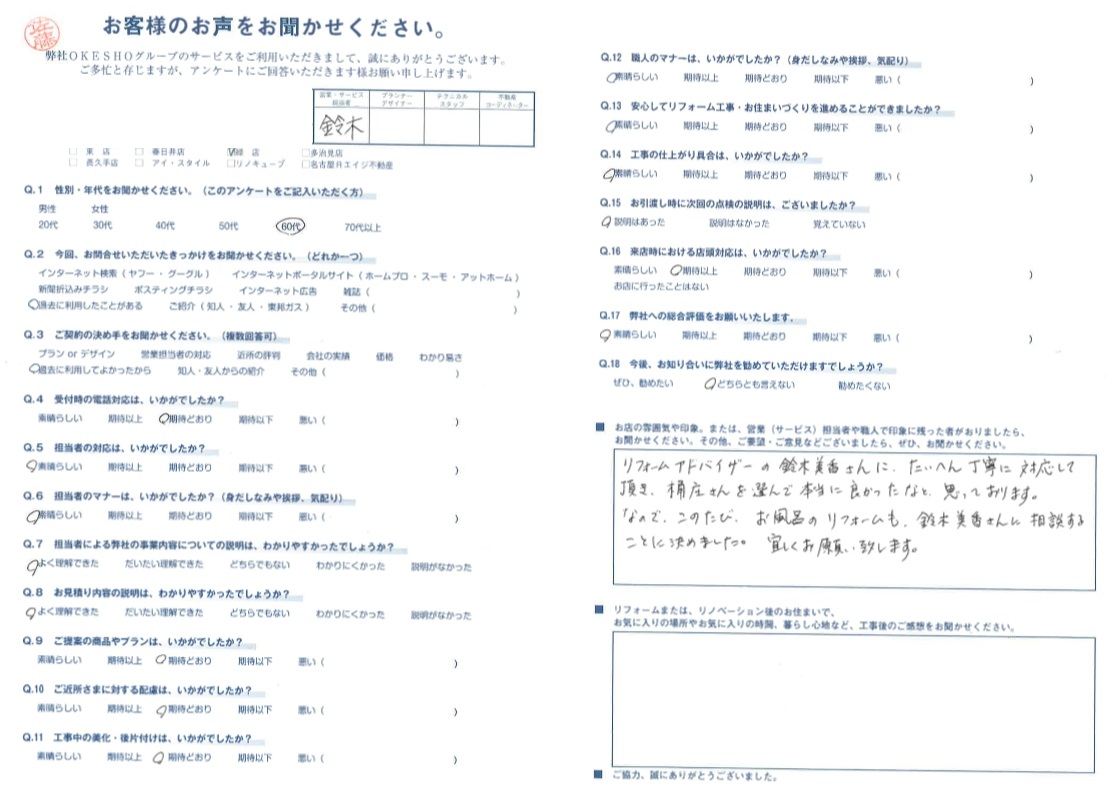 佐藤
お客様のお声をお聞かせください。
弊社OKESHOグループのサービスをご利用いただきまして、誠にありがとうございます。
ご多忙と存じますが、アンケートにご回答いただきます様お願い申し上げます。
営業・サービス担当者 プランナー デザイナー テクニカル スタッフ 不動産 コーディネーター
鈴木
□ 東 店 □ 春日井店 ☑緑 店 □多治見店
□ 長久手店 □ アイ・スタイル □リノキューブ □名古屋月エイジ不動産
Q.1 性別・年代をお聞かせください。(このアンケートをご記入いただく方)
男性 女性
20代 30代 40代 50代 60代 70代以上
Q.2 今回、お問合せいただいたきっかけをお聞かせください。(どれか一つ)
インターネット検索(ヤフー・グーグル) インターネットポータルサイト(ホームプロ・スーモ・アットホーム)
新聞折込みチラシ ポスティングチラシ インターネット広告 雑誌( )
過去に利用したことがある ご紹介(知人・友人・東邦ガス) その他( )
Q.3 ご契約の決め手をお聞かせください。(複数回答可)
プラン or デザイン 営業担当者の対応 近所の評判 会社の実績 価格 わかり易さ
過去に利用してよかったから 知人・友人からの紹介 その他( )
Q.4 受付時の電話対応は、いかがでしたか?
素晴らしい 期待以上 期待どおり 期待以下 悪い( )
Q.5 担当者の対応は、いかがでしたか?
素晴らしい 期待以上 期待どおり 期待以下 悪い( )
Q.6 担当者のマナーは、いかがでしたか?(身だしなみや挨拶、気配り)
素晴らしい 期待以上 期待どおり 期待以下 悪い( )
Q.7 担当者による弊社の事業内容についての説明は、わかりやすかったでしょうか?
よく理解できた だいたい理解できた どちらでもない わかりにくかった 説明がなかった
Q.8 お見積り内容の説明は、わかりやすかったでしょうか?
よく理解できた だいたい理解できた どちらでもない わかりにくかった 説明がなかった
Q.9 ご提案の商品やプランは、いかがでしたか?
素晴らしい 期待以上 期待どおり 期待以下 悪い( )
Q.10 ご近所さまに対する配慮は、いかがでしたか?
素晴らしい 期待以上 期待どおり 期待以下 悪い( )
Q.11 工事中の美化・後片付けは、いかがでしたか?
素晴らしい 期待以上 期待どおり 期待以下 悪い( )
Q.12 職人のマナーは、いかがでしたか?(身だしなみや挨拶、気配り)
素晴らしい 期待以上 期待どおり 期待以下 悪い( )
Q.13 安心してリフォーム工事・お住まいづくりを進めることができましたか?
素晴らしい 期待以上 期待どおり 期待以下 悪い( )
Q.14 工事の仕上がり具合は、いかがでしたか?
素晴らしい 期待以上 期待どおり 期待以下 悪い( )
Q.15 お引渡し時に次回の点検の説明は、ございましたか?
説明はあった 説明はなかった 覚えていない
Q.16 来店時における店頭対応は、いかがでしたか?
素晴らしい 期待以上 期待どおり 期待以下 悪い( )
お店に行ったことはない
Q.17 弊社への総合評価をお願いいたします。
素晴らしい 期待以上 期待どおり 期待以下 悪い( )
Q.18 今後、お知り合いに弊社を勧めていただけますでしょうか?
ぜひ、勧めたい どちらとも言えない 勧めたくない
■ お店の雰囲気や印象。または、営業(サービス)担当者や職人で印象に残った者がおりましたら、
お聞かせください。その他、ご要望・ご意見などございましたら、ぜひ、お聞かせください。
リフォームアドバイザーの鈴木美香さんに、たいへん丁寧に対応して
頂き、桶庄さんを選んで本当に良かったなと、思っております。
なので、このたび、お風呂のリフォームも、鈴木美香さんに相談する
ことに決めました。宜しくお願い致します。
■ リフォームまたは、リノベーション後のお住まいで、
お気に入りの場所やお気に入りの時間、暮らし心地など、工事後のご感想をお聞かせください。
■ ご協力、誠にありがとうございました。